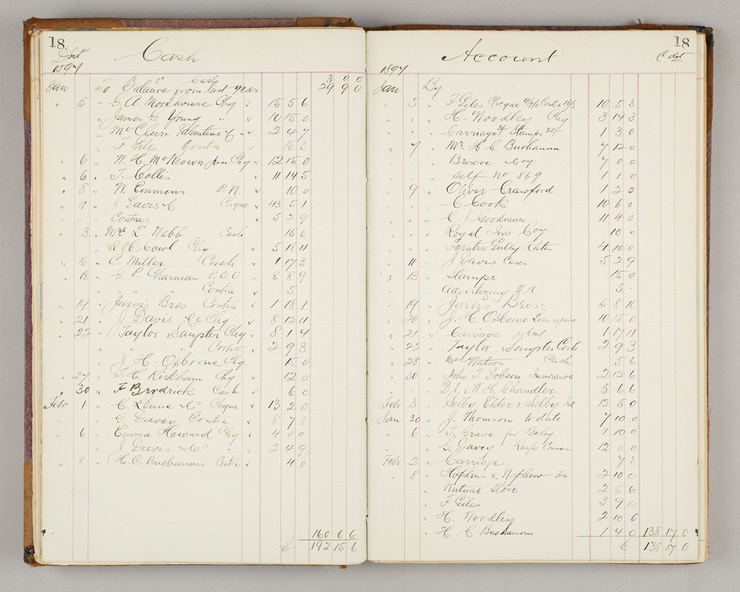 18
Cash
1897
Jan To Balance from last year 29 9 0
" 5 " G. A. Morehouse Chq " 15 5 6
James G Young " " 10 15 0
McClain Valentine & " " 2 4 7
F Giles Contra 16 3
" 6 " W. H. McKeown Jun Chq " 12 15 0
" 6 " T. Collis " 11 14 5
" 8 " W. Emmens P.N. " 10 0
" 9 " J Davis & Cheque " 43 5 1
Contra " 5 2 9
" 3 " Mrs E. Webb Cash 15 0
" " Cowl Chq " 5 18 11
" 16 " C. Miller Cash " 1 17 3
" 18 " G. P. Sharman P.O.O " 8 8 9
" Contra " 5 -
" 19 " Jarvis Bros Contra " 1 18 1
" 21 " J Davis & Co Chq " 8 12 11
" 22 " Taylor & Sangster Chq " 8 1 4
" Contra " 2 9 3
J. H. Osborne Chq 15 0
" 29 " Kirkham Chq " 12 0
" 30 " F Brodrick Cash " 6 0
Febr 1 " C Lewis & Co Cheque " 13 2 0
" G Davey Contra " 8 7 8
" 6 " Emma Howard Chq " 4 0 0
" J Davis & Co " " 2 4 9
" 8 " H. C. Buchanan Contra " 4 0
160 6 6
£ 192 15 6
18
Account
1897
Jan By
5 " F Giles 10 5 3
" H. Woodley Chq 3 14 3
" Carriage & Stamps 1 3 0
" 7 " Mr H C Buchanan 7 12 0
" Coy 7 0 0
" Self No 869 1 1 0
" 9 " Oliver Crawford 1 2 0
" C Cook 10 6 0
" C J Goodman 11 4 0
" Royal Ins Coy 10 0
" 4 10 0
" 11 " J Davis 5 2 9
" 13 " Stamps 15 0
" Advertising 5 -
" 19 " Jarvis Bros. 6 8 10
" 20 " J. H Osborne 10 15 0
" 21 " Carriage 1 17 11
" 22 " Taylor & Sangster Contra 2 9 3
" 28 " Mrs Watson Cash 5 6
" 30 " John T Dobson Insurance 2 12 6
" H Chandler 5 6 6
Febr 3 " Elder 12 5 0
Jan 30 " J. Thomson to date 7 10 0
" 6 " Grave for Baby 1 10 0
" G Davey 12 0 0
Febr 2 " Carriage 7 3
" 8 " Hopkins & Nephew 2 10 0
" Mutual Store 2 5 6
" F Giles 3 9 0
" H. Woodley 2 10 6
" H. C Buchanan 1 4 0 138 17 0
£ 138 17 0